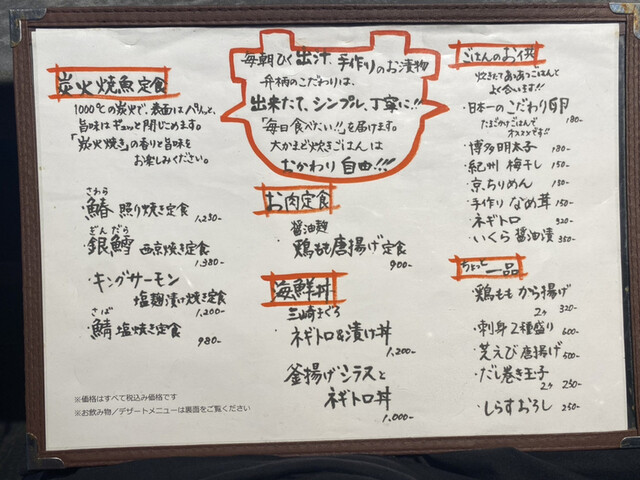 炭火焼魚定食
1000℃の炭火で、表面はパリっと、
旨味はギュッと閉じこめます。
「炭火焼き」の香りと旨味を
お楽しみください。
さわら
・鰆 照り焼き定食
1,230-
ぎんだら
・銀鱈 西京焼き定食
1,380-
・キングサーモン
塩麹漬け焼き定食
1,200-
さば
・鯖 塩焼き定食
980-
※価格はすべて税込み価格です
※お飲み物/デザートメニューは裏面をご覧ください
毎朝ひく出汁、手作りのお漬物
弁柄のこだわりは、
出来たて、シンプル、丁寧に!!
「毎日食べたい!!」を届けます。
大かまど炊きごはんは
おかわり自由!!!
お肉定食
醤油麹
鶏もも唐揚げ定食
900-
海鮮丼
三崎まぐろ
ネギトロ&漬け丼
1,200-
釜揚げシラスと
ネギトロ丼
1,000-
ごはんのお供
炊きたてあつあつごはんと
よく合います!!
・日本一のこだわり卵
たまごかけごはんで
オススメです!!
180-
・博多明太子 180-
・紀州 梅干し 150-
・京ちりめん 150-
・手作り なめ茸 150-
・ネギトロ 320-
・いくら醤油漬 350-
ちょっと一品
・鶏もも から揚げ
2ヶ 320-
・刺身2種盛り 600-
・芝えび唐揚げ 500-
・だし巻き玉子
2ヶ 250-
・しらすおろし 250-